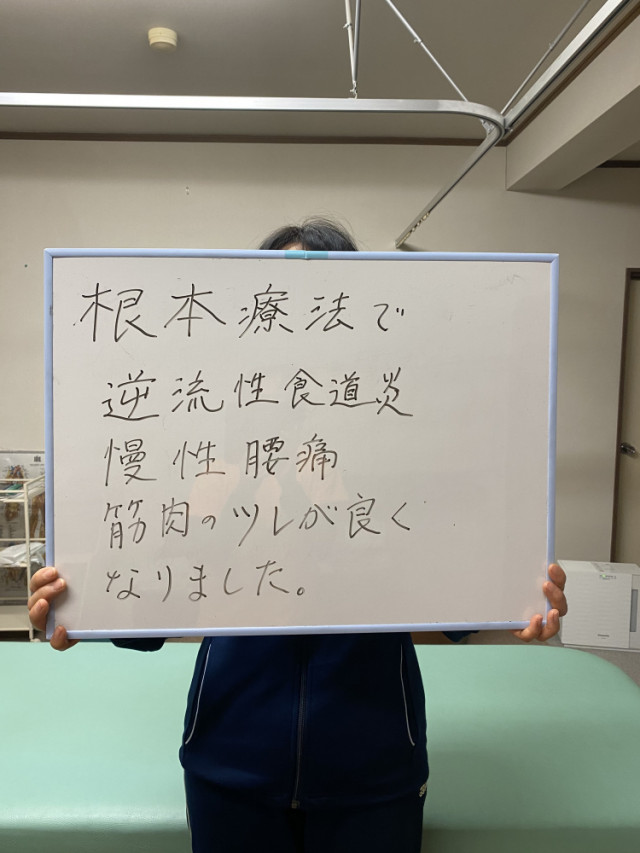 根本療法で
逆流性食道炎
慢性腰痛
筋肉のツレが良く
なりました。